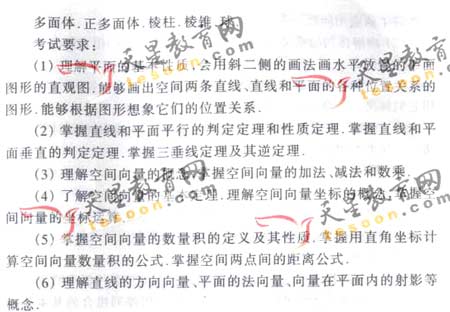 多面体.正多面体.棱柱.棱锥.球.
考试要求:
(1)理解平面的基本性质,会用斜二侧的画法画水平放置的平面
图形的直观图.能够画出空间两条直线、直线和平面的各种位置关系的
图形.能够根据图形想象它们的位置关系.
(2)掌握直线和平面平行的判定定理和性质定理.掌握直线和平
面垂直的判定定理.掌握三垂线定理及其逆定理.
(3)理解空间向量的概念,掌握空间向量的加法、减法和数乘.
(4)了解空间向量的基本定理.理解空间向量坐标的概念,掌握空
间向量的坐标运算.
(5)掌握空间向量的数量积的定义及其性质.掌握用直角坐标计
算空间向量数量积的公式.掌握空间两点间的距离公式.
(6)理解直线的方向向量、平面的法向量、向量在平面内的射影等
概念.
天星教育网
tesoon.com
天星教育网
tesoon.com
天星教育网
tesoon.com
天星教育网
tesoon.com